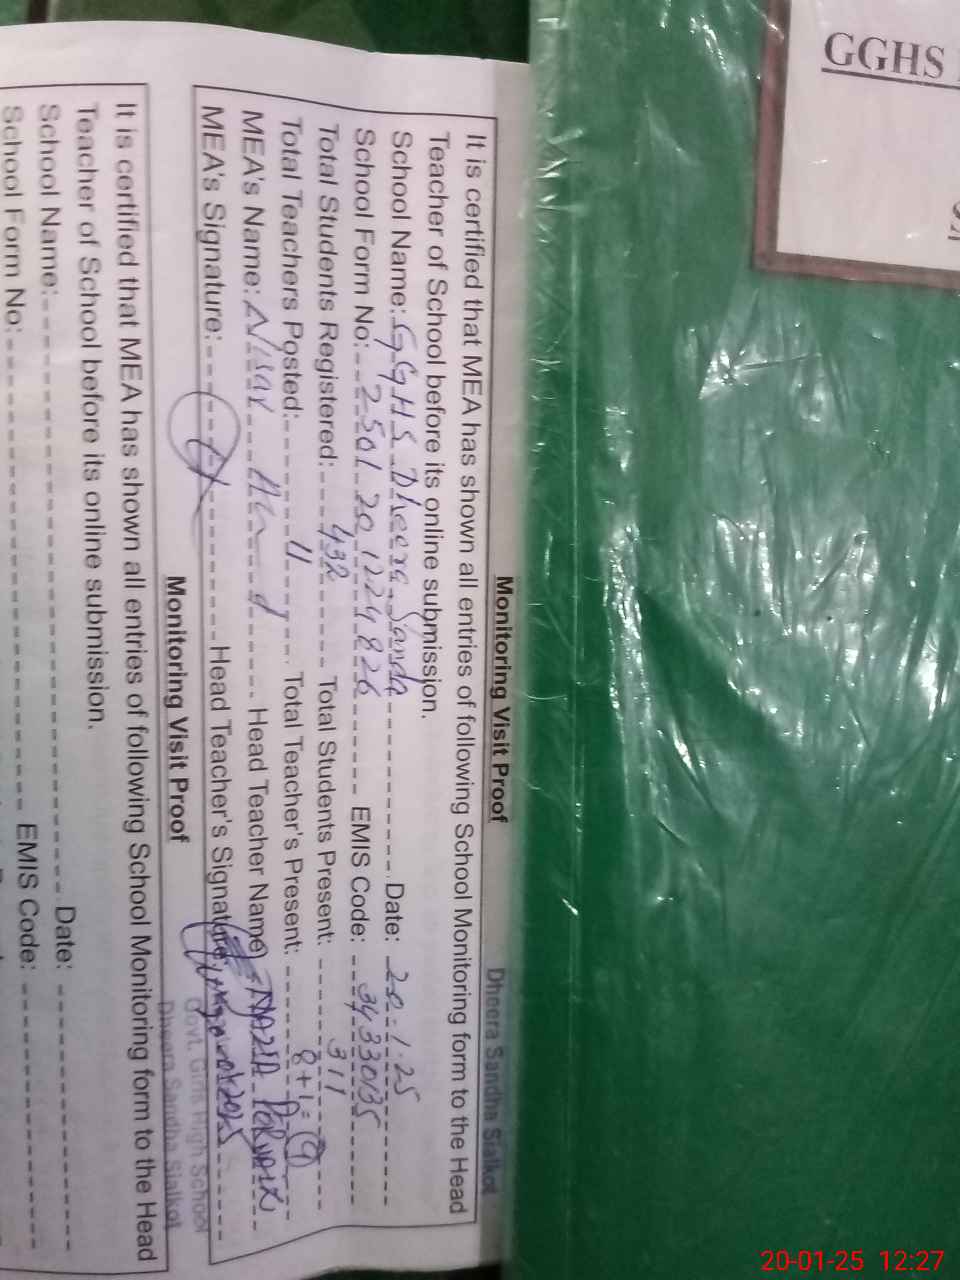 GGHS
Dheera Sandha Sialkot
Monitoring Visit Proof
It is certified that MEA has shown all entries of following School Monitoring form to the Head
Teacher of School before its online submission.
School Name: GGHS Dheera Sanda Date: 20-1-25
School Form No: 2501201224826 EMIS Code: 34330135
Total Students Registered: 432 Total Students Present: 311
Total Teachers Posted: 11 Total Teacher's Present: 8+1=9
MEA's Name: Nisar Head Teacher Name: NAZIA PERVAIZ
MEA's Signature: Head Teacher's Signature:
Govt. Girls High School
Dheera Sandha Sialkot
Monitoring Visit Proof
It is certified that MEA has shown all entries of following School Monitoring form to the Head
Teacher of School before its online submission.
School Name: Date:
School Form No: EMIS Code:
20-01-25 12:27